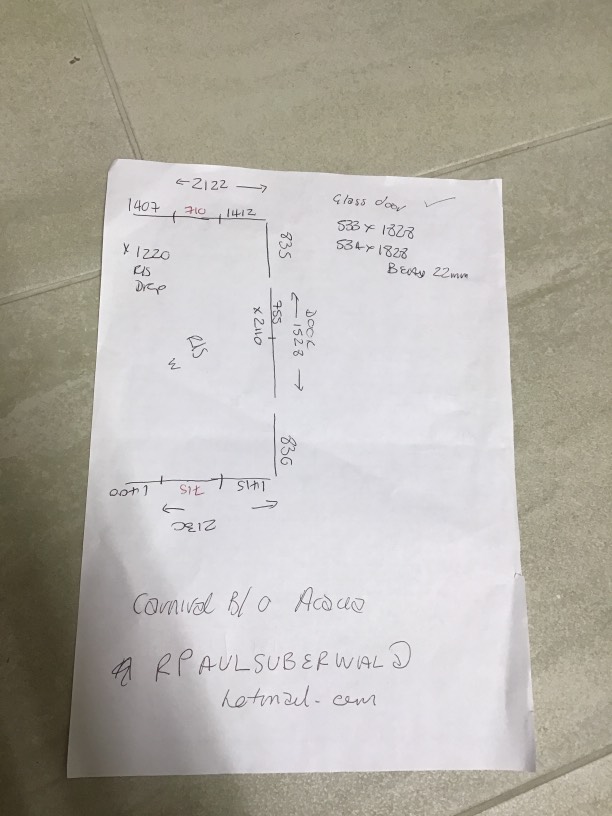 ←2122→
1407 710 1412
835
x 1220
R/S
Drop
DOOR
←1528→
755
x 2110
R/S
836
1400 715 1415
←→
Glass door ✓
533 x 1828
534 x 1828
22mm
Carnival B/O Acacia
RPAULSUBERWAL@
hotmail.com